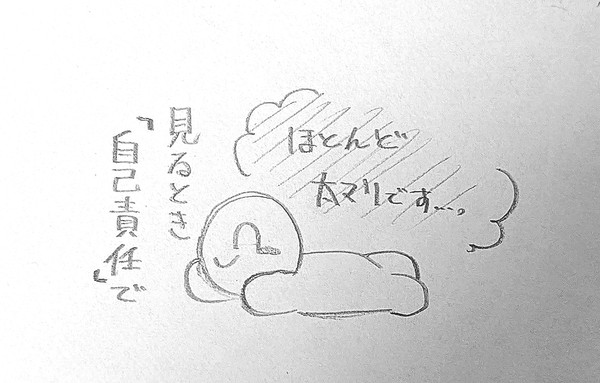 見るとき
「自己責任」で
ほとんど
太マリです…。